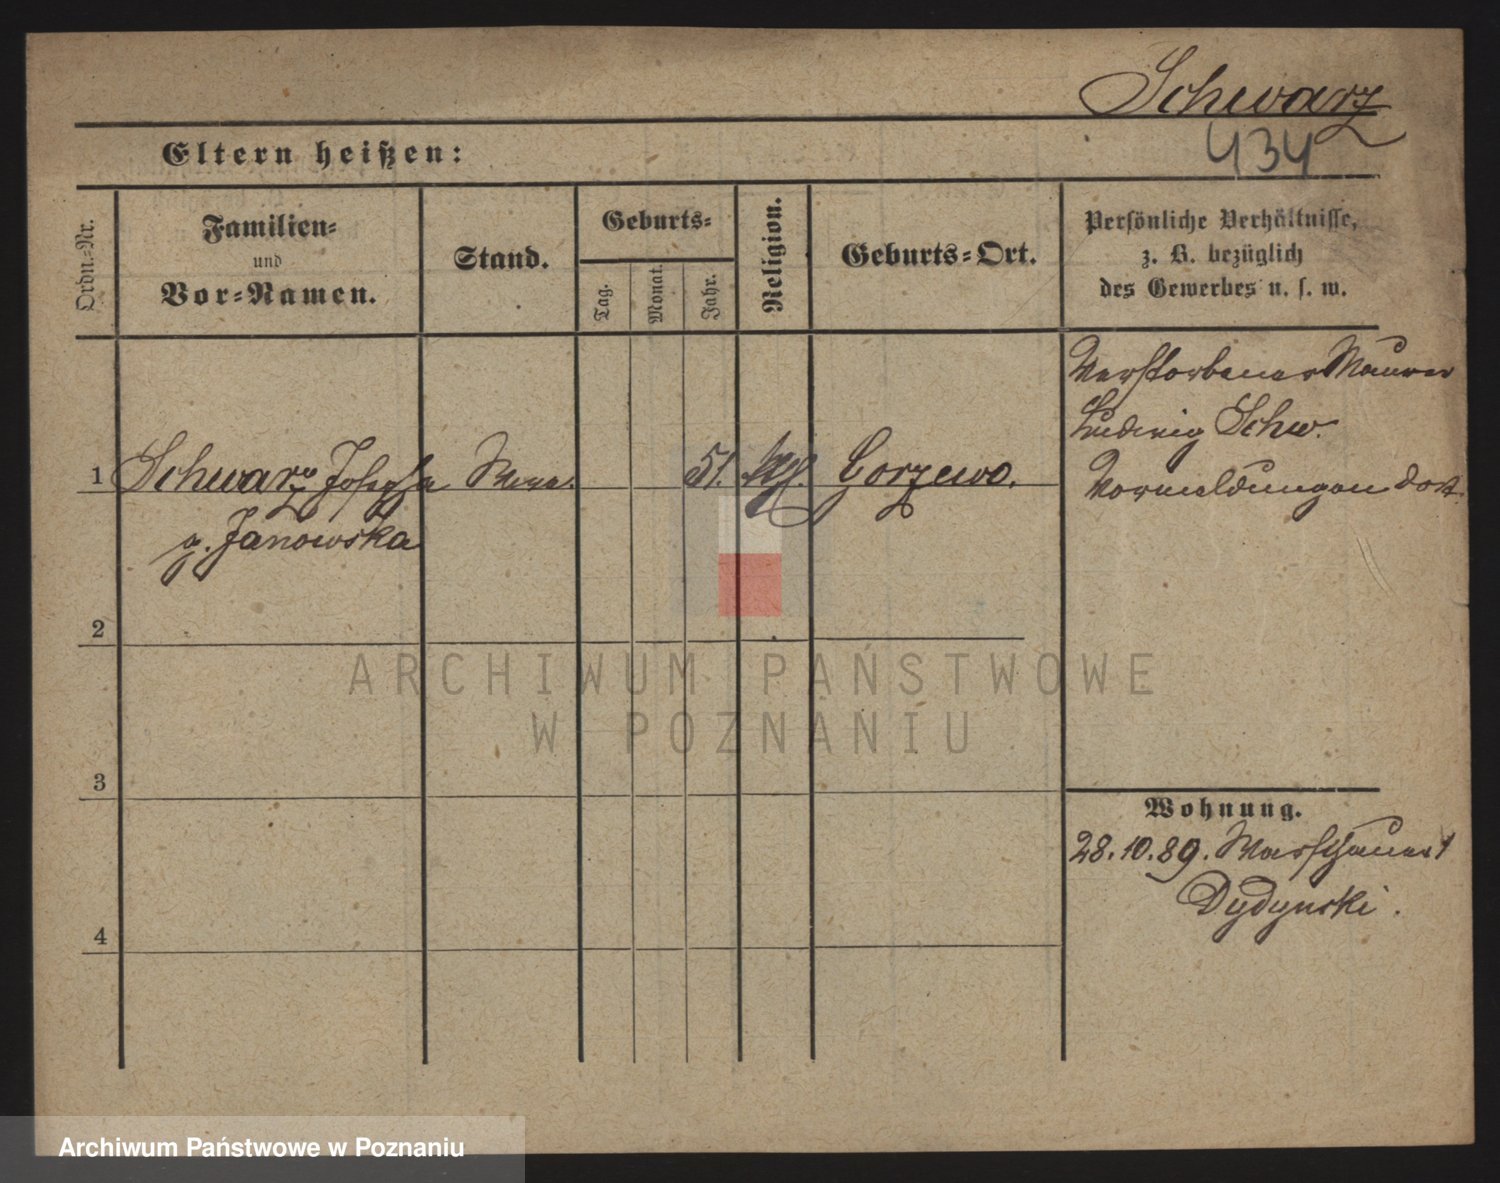 Schwarz
434
Eltern heißen:
Ordn.-Nr.
Familien-
und
Vor-Namen.
Stand.
Geburts-
Tag.
Monat.
Jahr.
Religion.
Geburts-Ort.
Persönliche Verhältnisse,
z. B. bezüglich
des Gewerbes u. s. w.
Verstorbener Maurer
Ludwig Schw.
Vormeldungen dort.
1 Schwarz Josepha 51. Gorzewo.
g. Janowska
2
3
4
Wohnung.
28.10.89.
Dydynski.
ARCHIWUM PAŃSTWOWE
W POZNANIU
Archiwum Państwowe w Poznaniu